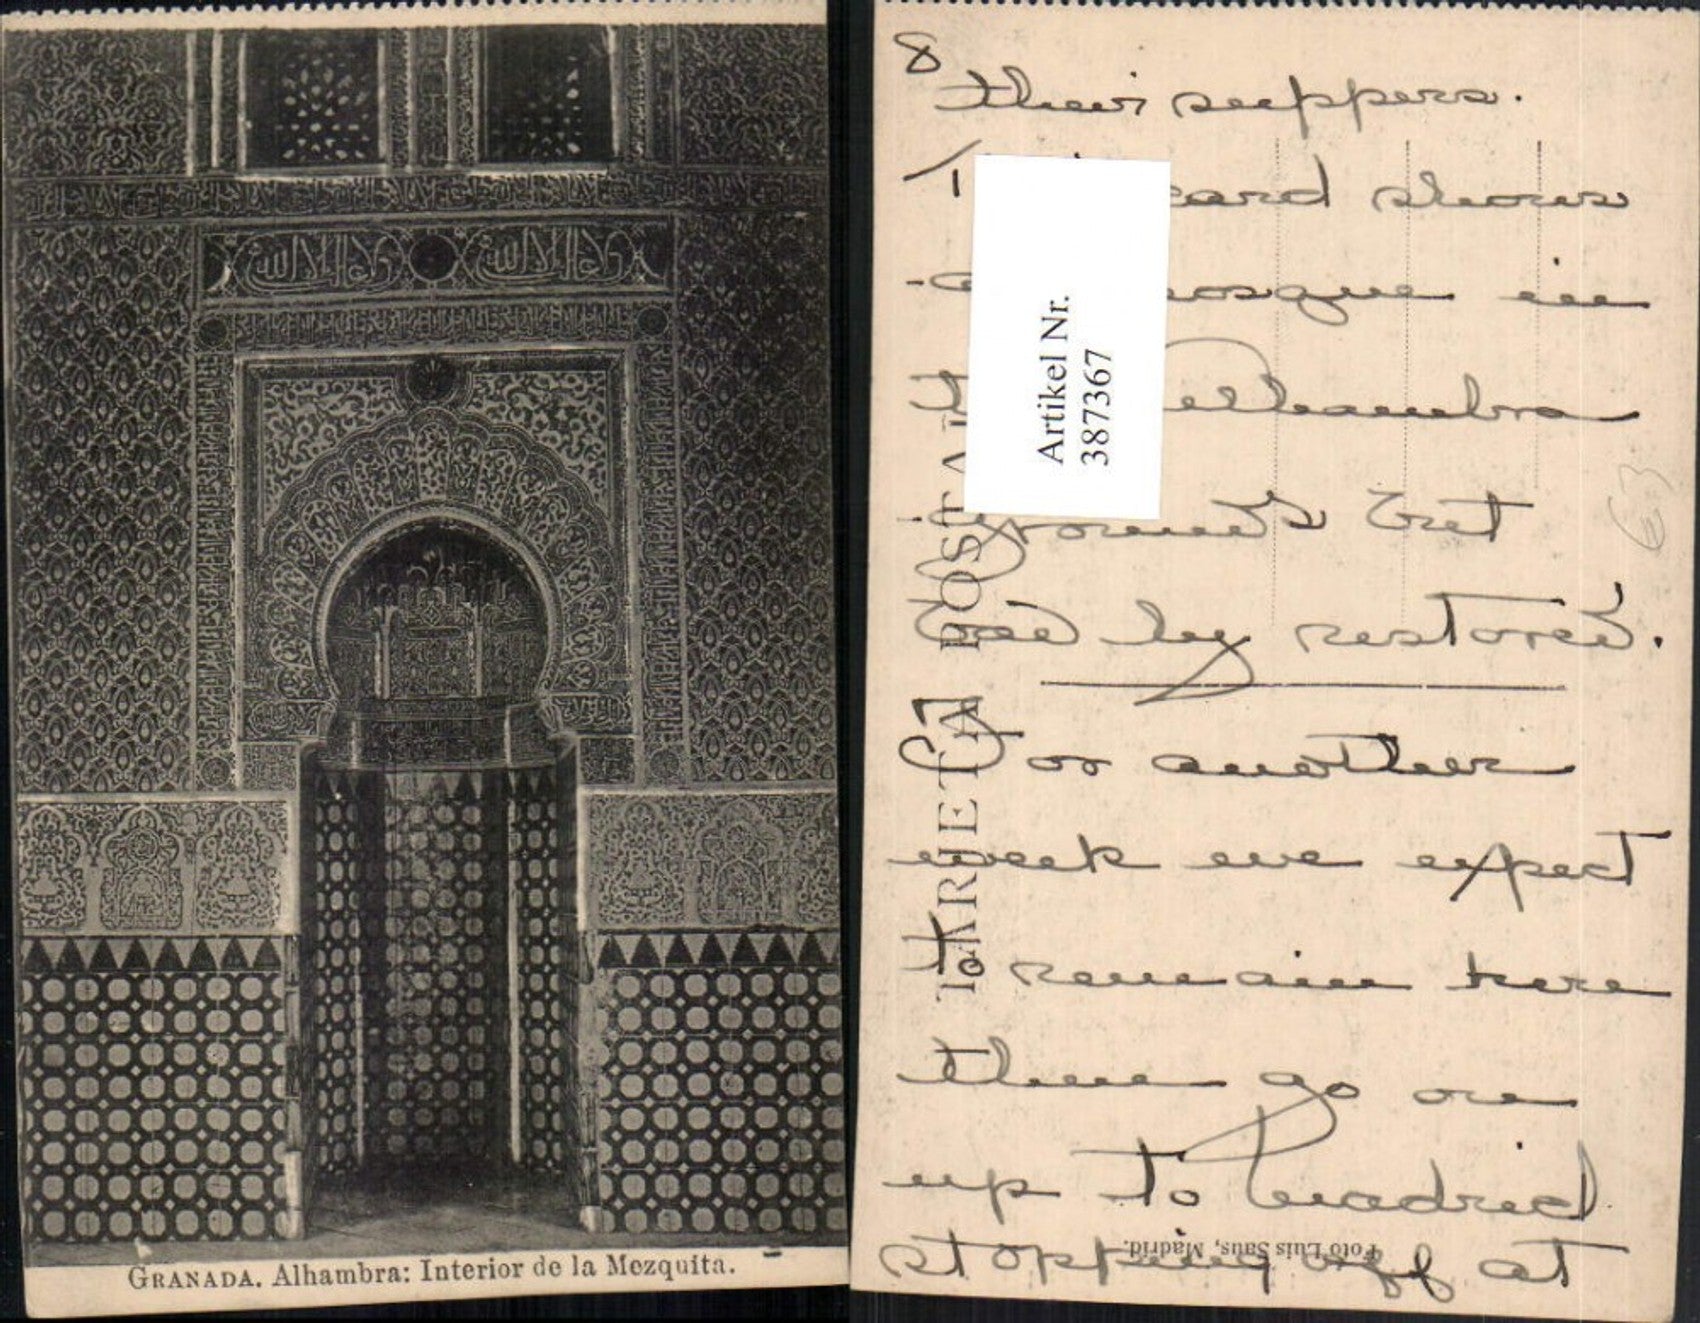 GRANADA. Alhambra: Interior de la Mezquita.
8
their suppers.
card shows
in
Alhambra
grounds but
by restored.
For another
week we expect
to remain here
then go on
up to Madrid
stopping off at
TARJETA POSTAL
Foto Luis Saus, Madrid.
Artikel Nr.
387367
63